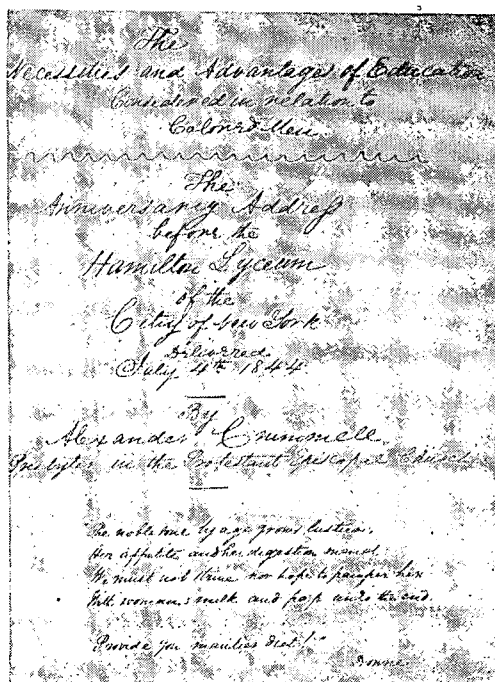 The
Necessities and Advantages of Education
Considered in relation to
Colored Men
The
Anniversary Address
before the
Hamilton Lyceum
of the
City of New York
Delivered
July 4th 1844
By
Alexander Crummell
Presbyter in the Protestant Episcopal Church
The noble soul by age grows lustier,
Her appetite and her digestion mend
We must not starve nor hope to pamper her
With woman's milk and pap unto the end.
Provide you manlier diet!"
Donne.